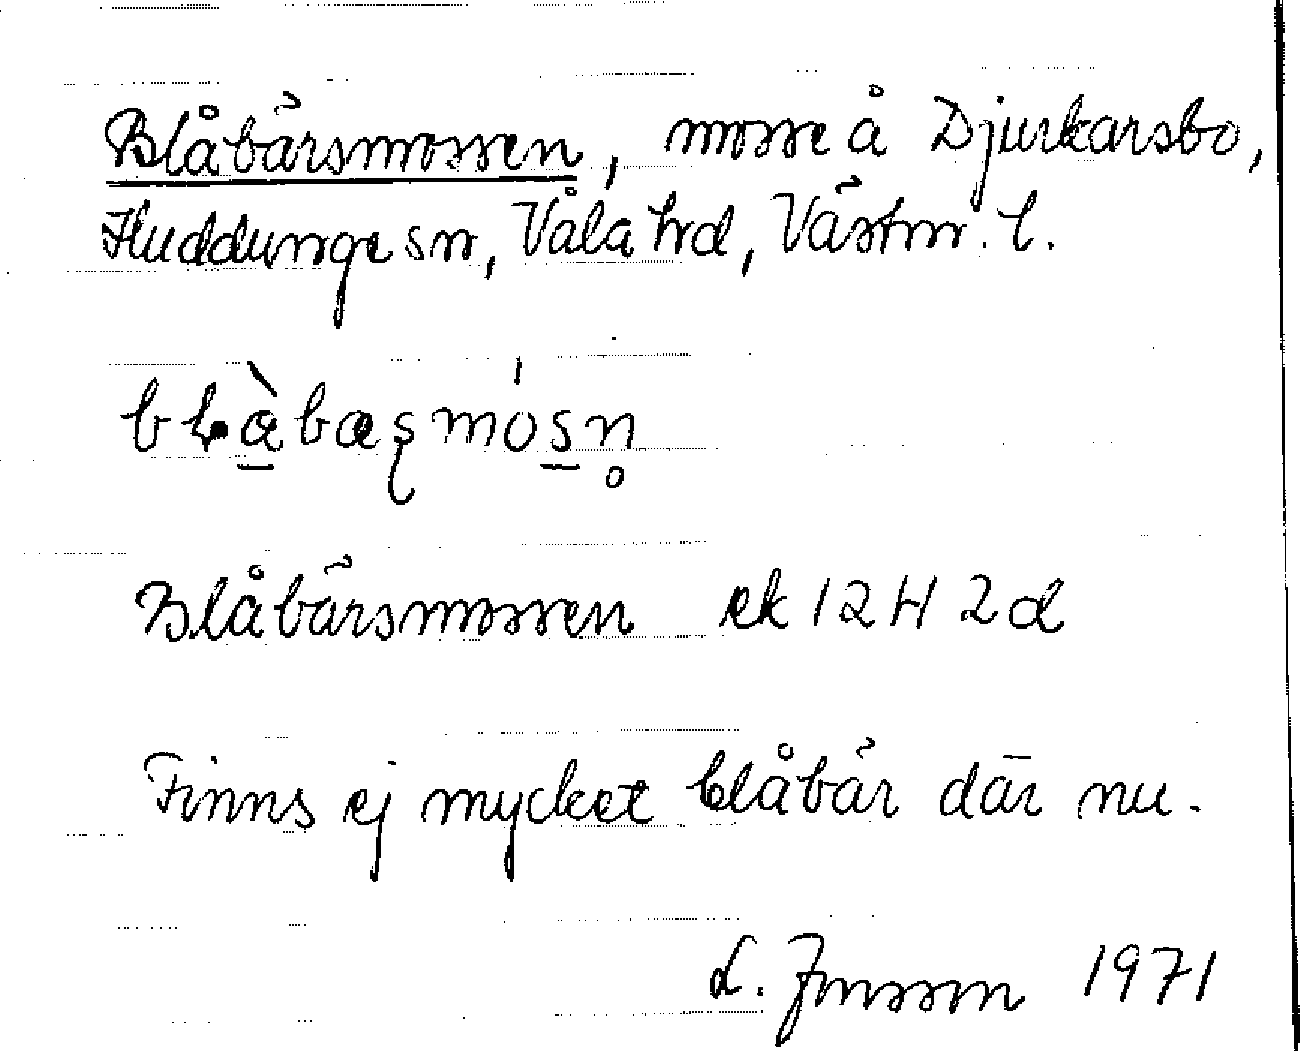 Blåbärsmossen, mosse å Djurkarsbo,
Huddunge sn, Våla hd, Västm. l.
Blåbärsmossen ek 12H 2d
Finns ej mycket blåbär där nu.
L. Jonsson 1971